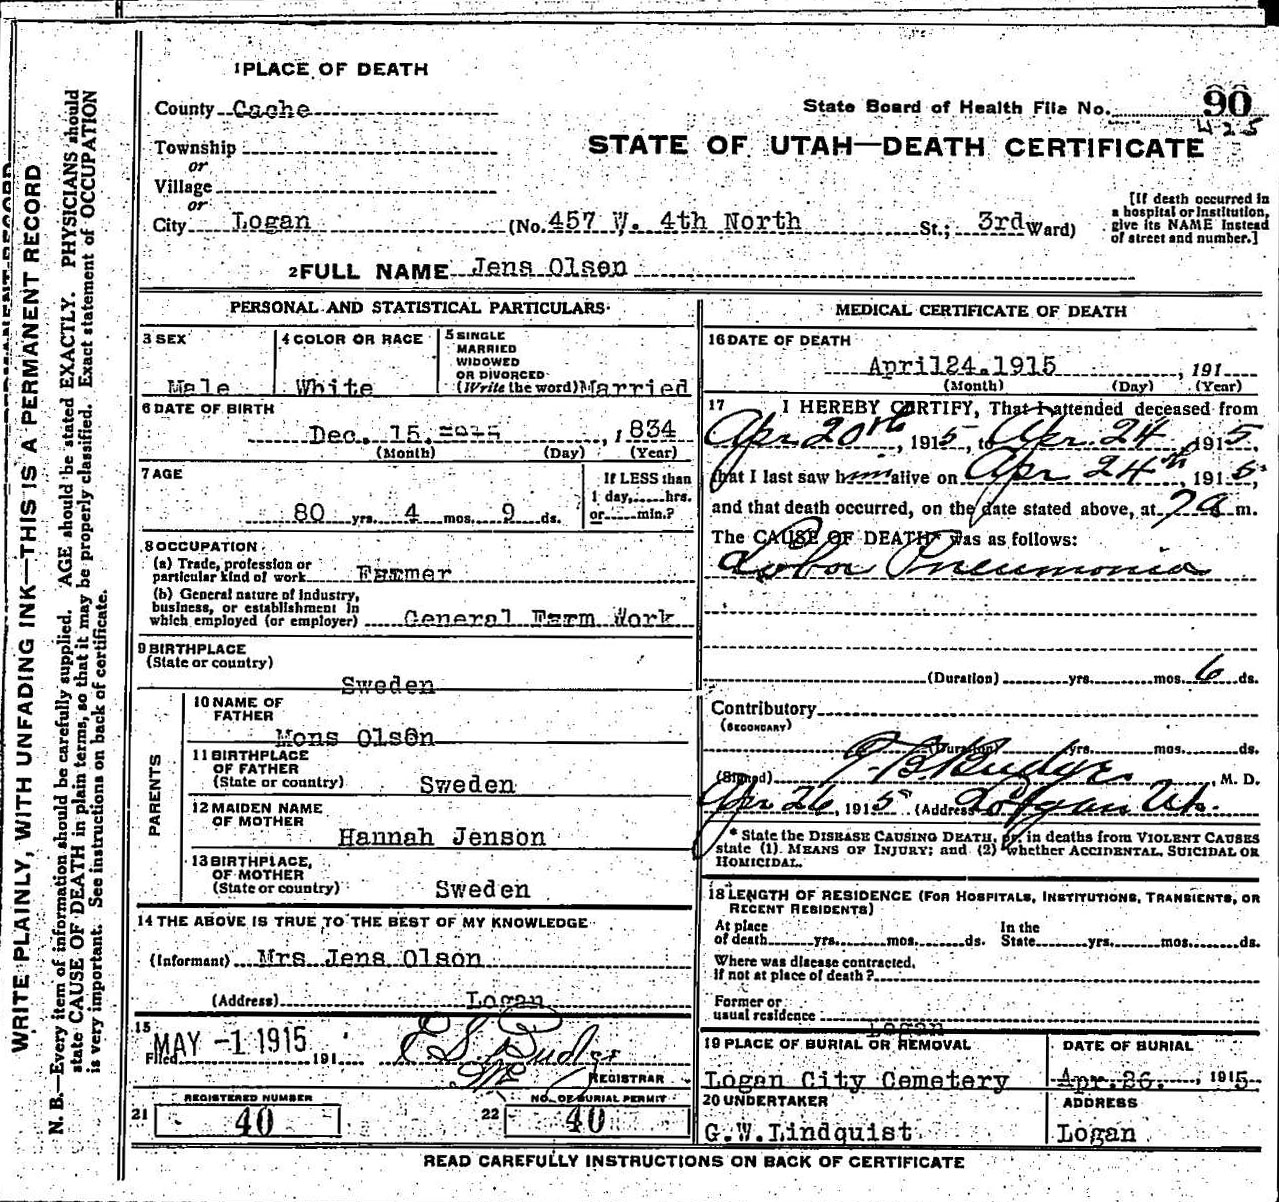 1 PLACE OF DEATH
County Cache
State Board of Health File No. 90
425
STATE OF UTAH—DEATH CERTIFICATE
Township
or
Village
or
City Logan (No. 457 W. 4th North St.; 3rd Ward)
[If death occurred in a hospital or institution, give its NAME instead of street and number.]
2 FULL NAME Jens Olsen
PERSONAL AND STATISTICAL PARTICULARS
3 SEX
Male
4 COLOR OR RACE
White
5 SINGLE
MARRIED
WIDOWED
OR DIVORCED
(Write the word) Married
6 DATE OF BIRTH
Dec. 15. , 1834
(Month) (Day) (Year)
7 AGE
80 yrs. 4 mos. 9 ds.
If LESS than
1 day,.....hrs.
or.....min.?
8 OCCUPATION
(a) Trade, profession or
particular kind of work Farmer
(b) General nature of industry,
business, or establishment in
which employed (or employer) General Farm Work
9 BIRTHPLACE
(State or country)
Sweden
PARENTS
10 NAME OF
FATHER
Mons Olsen
11 BIRTHPLACE
OF FATHER
(State or country) Sweden
12 MAIDEN NAME
OF MOTHER
Hannah Jenson
13 BIRTHPLACE,
OF MOTHER
(State or country) Sweden
14 THE ABOVE IS TRUE TO THE BEST OF MY KNOWLEDGE
(Informant) Mrs Jens Olson
(Address) Logan
15
Filed MAY -1 1915 191
REGISTRAR
21 REGISTERED NUMBER
40
22 NO. OF BURIAL PERMIT
40
MEDICAL CERTIFICATE OF DEATH
16 DATE OF DEATH
April 24. 1915 , 191
(Month) (Day) (Year)
17 I HEREBY CERTIFY, That I attended deceased from
Apr 20th, 1915, to Apr. 24 1915,
that I last saw him alive on Apr 24th, 1915,
and that death occurred, on the date stated above, at 7 a m.
The CAUSE OF DEATH* was as follows:
Lobar Pneumonia
(Duration) yrs. mos. 6 ds.
Contributory
(SECONDARY)
(Duration) yrs. mos. ds.
(Signed) Budge, M. D.
Apr 26, 1915 (Address Logan Ut.
* State the DISEASE CAUSING DEATH, or, in deaths from VIOLENT CAUSES
state (1) MEANS OF INJURY; and (2) whether ACCIDENTAL, SUICIDAL OR
HOMICIDAL.
18 LENGTH OF RESIDENCE (FOR HOSPITALS, INSTITUTIONS, TRANSIENTS, OR
RECENT RESIDENTS)
At place
of death yrs. mos. ds.
In the
State yrs. mos. ds.
Where was disease contracted,
if not at place of death?
Former or
usual residence
Logan
19 PLACE OF BURIAL OR REMOVAL
Logan City Cemetery
DATE OF BURIAL
Apr. 26. , 1915
20 UNDERTAKER
G.W.Lindquist
ADDRESS
Logan
READ CAREFULLY INSTRUCTIONS ON BACK OF CERTIFICATE
WRITE PLAINLY, WITH UNFADING INK—THIS IS A PERMANENT RECORD
N. B.—Every item of information should be carefully supplied. AGE should be stated EXACTLY. PHYSICIANS should
state CAUSE OF DEATH in plain terms, so that it may be properly classified. Exact statement of OCCUPATION
is very important. See instructions on back of certificate.